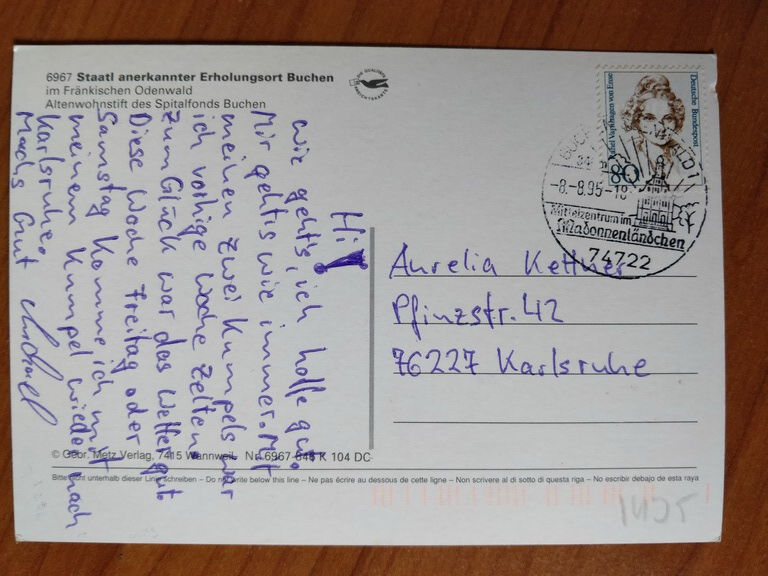 6967 Staatl anerkannter Erholungsort Buchen
im Fränkischen Odenwald
Altenwohnstift des Spitalfonds Buchen
Hi!
Wie geht's, ich hoffe gut.
Mir geht's wie immer. Mit
meinen zwei Kumpels war
ich vorhige Woche Zelten.
Zum Glück war das Wetter gut.
Diese Woche Freitag oder
Samstag komme ich mit
meinem Kumpel wieder nach
Karlsruhe.
Machs Gut
Deutsche Bundespost
Rahel Varnhagen von Ense
80
-8.-8.95-18
Mittelzentrum im
Madonnenländchen
74722
Aurelia Kettner
Pfinzstr. 42
76227 Karlsruhe
© Gebr. Metz Verlag, 7415 Wannweil, Nr. 6967-646 K 104 DC
Bitte nicht unterhalb dieser Linie schreiben – Do not write below this line – Ne pas écrire au dessous de cette ligne – Non scrivere al di sotto di questa riga – No escribir debajo de esta raya